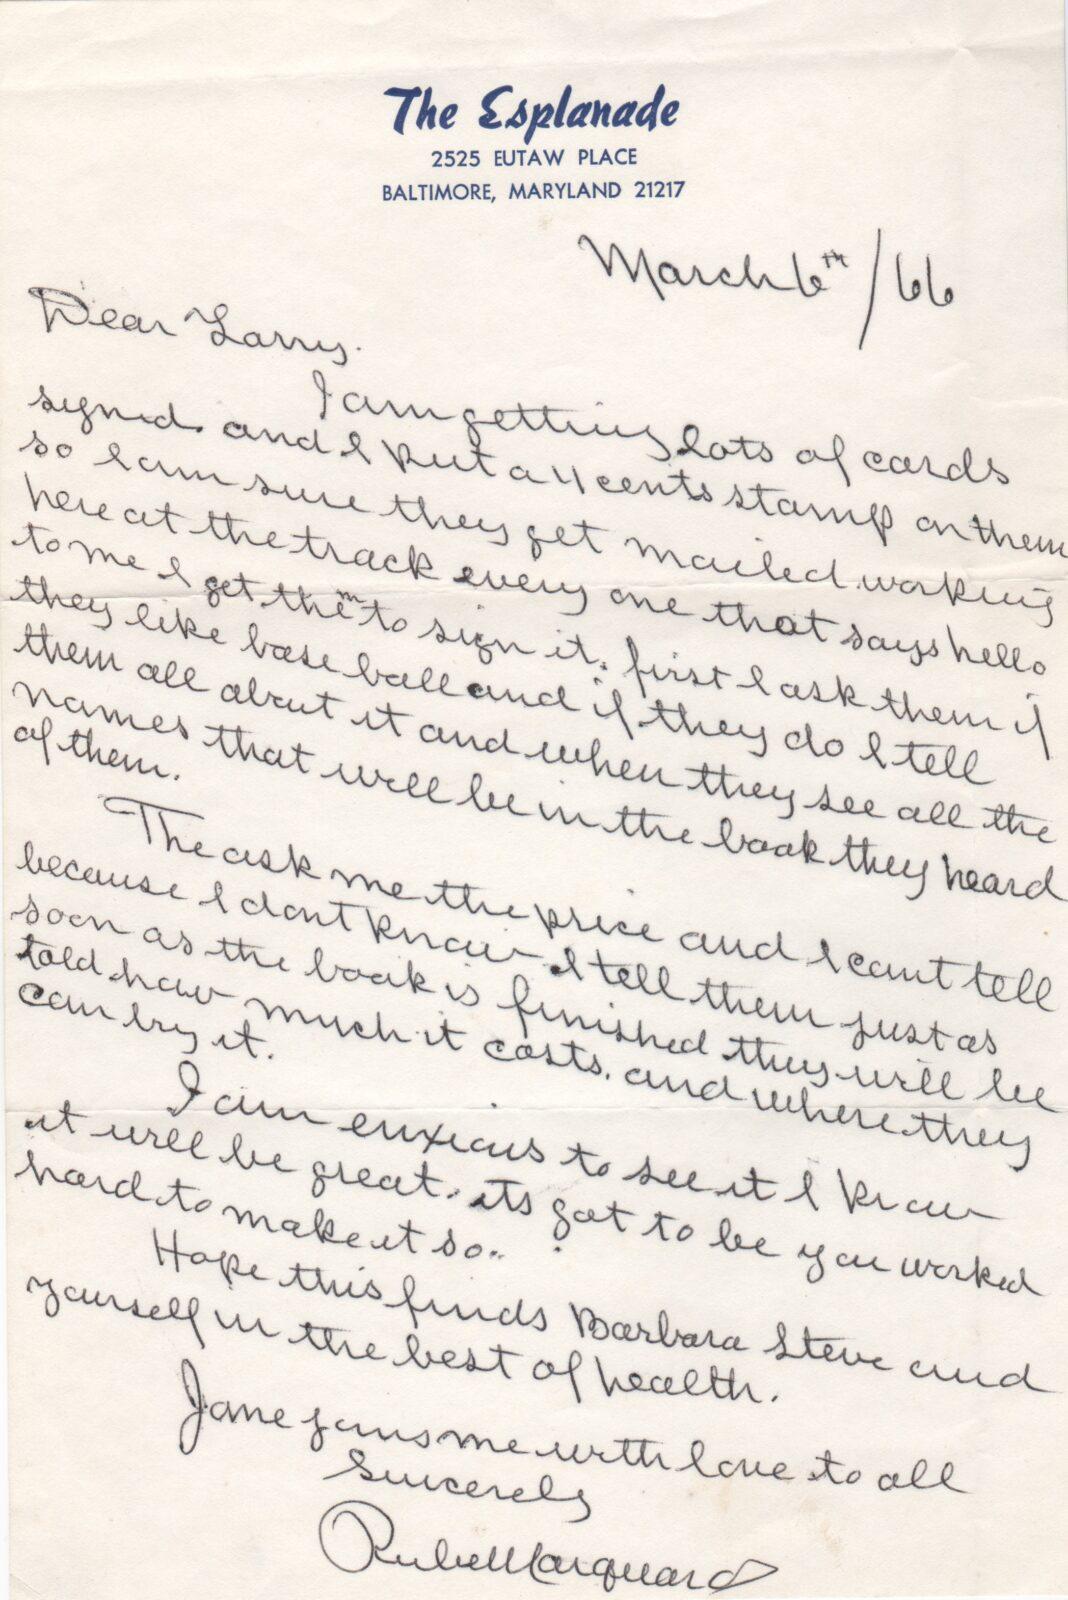 The Esplanade
2525 EUTAW PLACE
BALTIMORE, MARYLAND 21217
March 6th/66
Dear Larry.
I am getting lots of cards
signed. and I put a 4 cents stamp on them
so I am sure they get mailed. working
here at the track every one that says hello
to me I get them to sign it. first I ask them if
they like base ball and if they do I tell
them all about it and when they see all the
names that will be in the book they heard
of them.
The ask me the price and I cant tell
because I dont know. I tell them just as
soon as the book is finished they will be
told how much it costs. and where they
can by it.
I am enxious to see it I know
it will be great. its got to be you worked
hard to make it so..
Hope this finds Barbara Steve and
yourself in the best of health.
Jane joins me with love to all
Sincerely
Rube Marquard